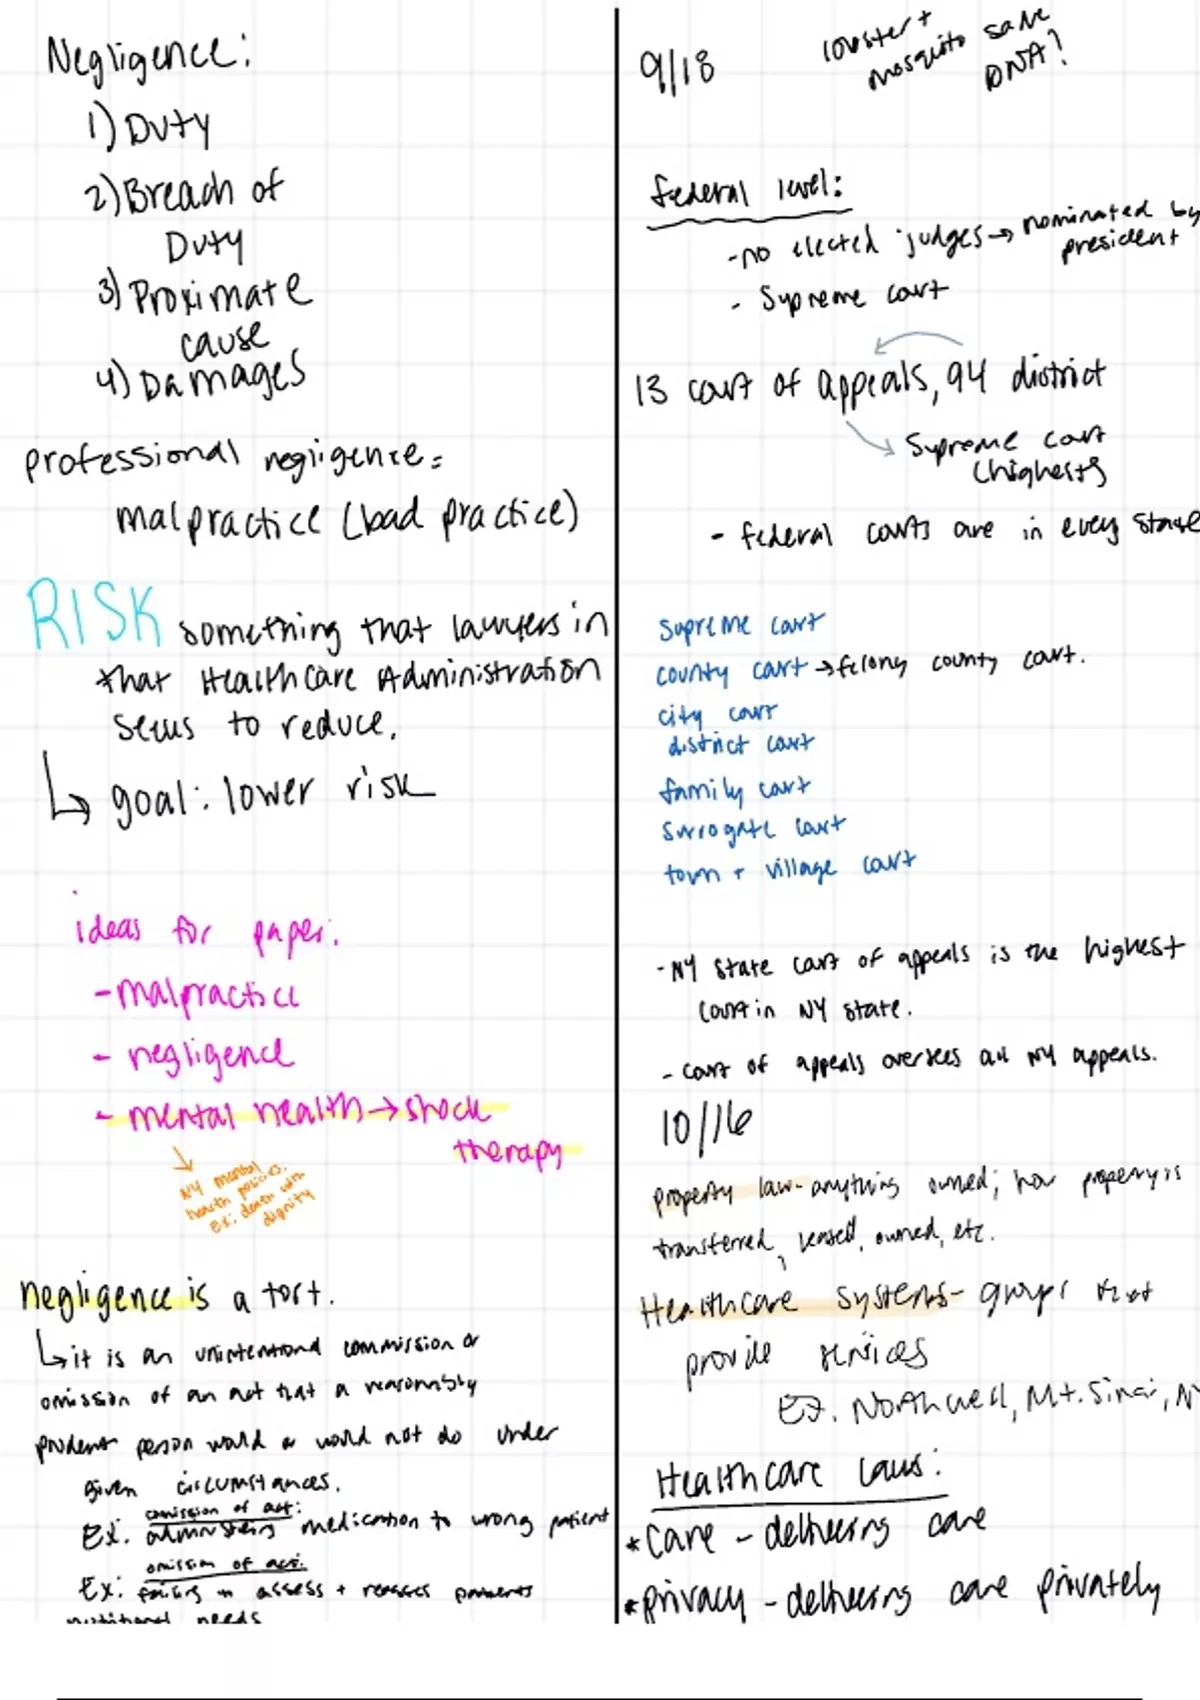 Negligence:
1) Duty
2) Breach of
Duty
3) Proximate
cause
4) Damages
professional negligence =
malpractice (bad practice)
RISK something that lawyers in
that Healthcare Administration
seeks to reduce.
↳ goal: lower risk
ideas for paper:
- malpractice
- negligence
- mental health → shock
therapy
NY mental
health policies.
Ex: death with
dignity
negligence is a tort.
↳ it is an unintentional commission or
omission of an act that a reasonably
prudent person would or would not do under
given circumstances.
comission of act:
Ex: administering medication to wrong patient
omission of act:
Ex: failing to assess + reassess patients
nutritional needs
9/18
lobster +
mosquito same
DNA?
federal level:
- no elected judges → nominated by
president
- Supreme court
13 court of appeals, 94 district
Supreme court
(highest)
- federal courts are in every state
supreme court
county court → felony county court.
city court
district court
family court
surrogate court
town + village court
- NY state court of appeals is the highest
court in NY state.
- court of appeals oversees all NY appeals.
10/16
property law - anything owned; how property is
transferred, leased, owned, etc.
Healthcare systems - groups that
provide services
Ex. Northwell, Mt. Sinai, N
Healthcare laws:
* care - delivering care
* privacy - delivering care privately